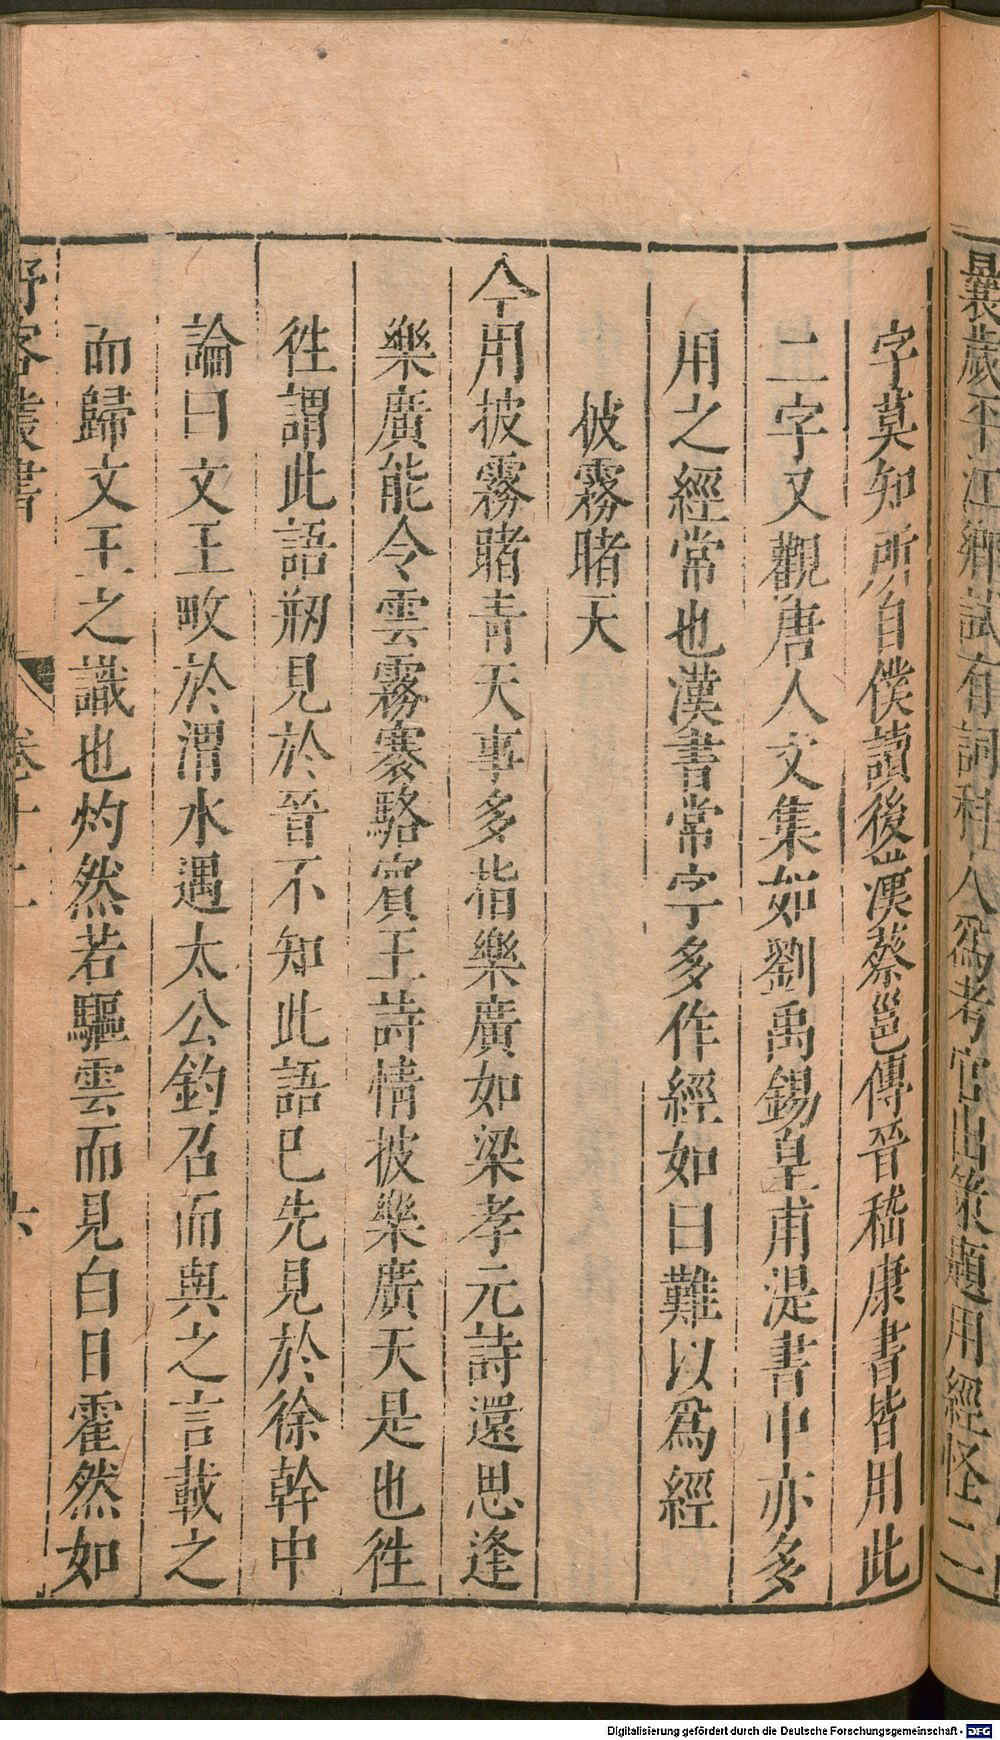 曩歲平江鄉試有詞科人爲考官出策題用經怪二
字莫知所自僕讀後漢蔡邕傳晉嵇康書皆用此
二字又觀唐人文集如劉禹錫皇甫湜書中亦多
用之經常也漢書常字多作經如曰難以爲經
披霧睹天
今用披霧睹青天事多指樂廣如梁孝元詩還思逢
樂廣能令雲霧褰駱賓王詩情披樂廣天是也徃
徃謂此語刱見於晉不知此語巳先見於徐幹中
論曰文王畋於渭水遇太公釣召而與之言載之
而歸文王之識也灼然若驅雲而見白日霍然如
野客叢書 卷十二 六
Digitalisierung gefördert durch die Deutsche Forschungsgemeinschaft - DFG